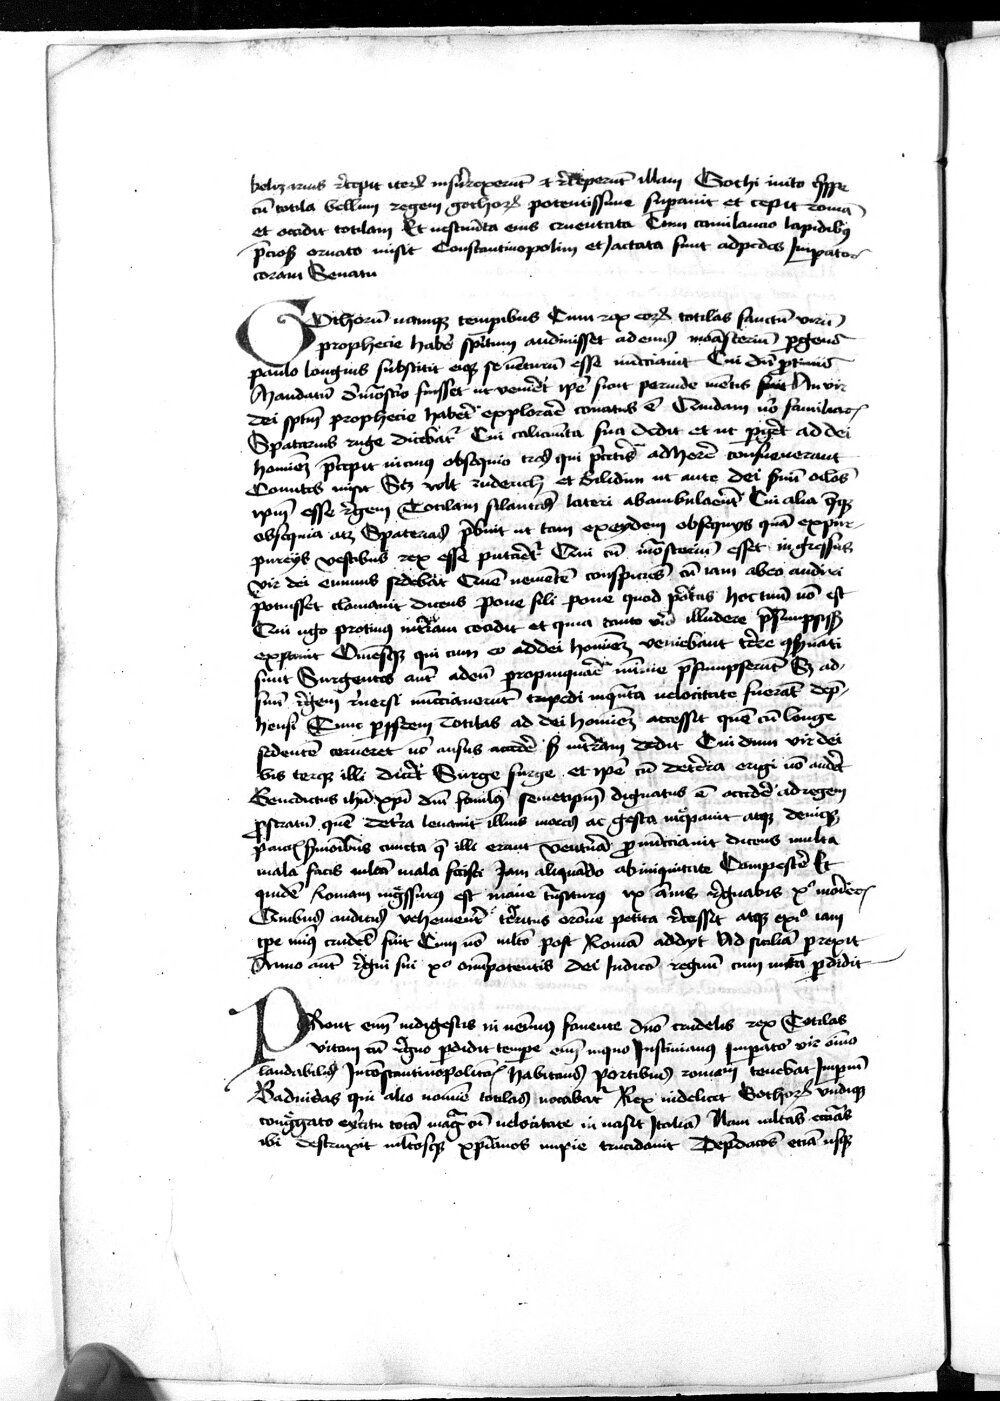 belizarius recepit iterum insurrexerunt et receperunt illam Gothi inito
cum totila bellum regem gothorum potentissime superavit et cepit romam
et occidit totilam Et vestimenta eius cruentata Cum camilaucio lapidibus
preciosis ornato misit Constantinopolim et Jactata sunt ad pedes Imperatoris
coram Senatu
Gothorum namque temporibus Cum rex eorum totilas sanctum virum
prophecie habere spiritum audivisset ad eius monasterium pergens
paulo longius substitit eique se venturum esse nunciavit Cui dum protinus
Mandatum de monasterio fuisset ut veniret ipse sicut perfide mentis fuit An vir
dei spiritum prophecie haberet explorare conatus est Quidam vero familiaris
Spatarius rige dicebatur Cui calciamenta sua dedit et ut pergeret ad dei
hominem precepit in cuius obsequio tres qui pre ceteris adherere consueverant
Comites misit Scilicet vult ruderich et Blidin ut ante dei servum oculos
ipsum esse regem Totilam simulantes lateri obambularent Cui alia quoque
obsequia atque Spatarios prebuit ut tam ex eisdem obsequiis quam ex pur-
pureis vestibus rex esse putaretur Qui cum monasterium esset ingressus
vir dei eminus sedebat Quem venientem conspiciens cum iam ab eo audiri
potuisset clamavit dicens Pone fili pone quod portas hoc tuum non est
Qui rigo protinus in terram cecidit et quia tanto viro illudere presumpsisset
expavit Omnesque qui cum eo ad dei hominem veniebant terre consternati
sunt Surgentes autem ad eum propinquare minime presumpserunt Sed ad
suum regem reversi nunciaverunt trepidi in quanta velocitate fuerant depre-
hensi Tunc per se ipsum Totilas ad dei hominem accessit quem cum longe
sedentem cerneret non ausus accedere sed in terram dedit Cui dum vir dei
bis terque illi diceret Surge surge et ipse cum de terra erigi non auderet
Benedictus ihesu xpi domini famulus semetipsum dignatus est accedere ad regem
prostratum quem de terra levavit illumque ac gesta increpavit atque denique
paucis sermonibus cuncta que illi erant ventura prenunciavit dicens multa
mala facis multa mala fecisti Jam aliquando ab iniquitate Compescere Et
quidem Romam ingressurus est mare transiturus ix annis regnabis x° morieris
Quibus auditis vehementer territus oracione petita recessit atque ex illo iam
tempore minus crudelis fuit Cum non multo post Romam adiit Ad siciliam perrexit
Anno autem regni sui x° omnipotentis dei Judicio regnum cum vita perdidit
Prout enim indigestis invenimus favente domino crudelis rex Totilas
vitam cum regno perdidit tempore enim in quo Justinianus Imperator vir omnino
laudabilis In constantinopolitanis habitans portibus romanum tenebat Imperium
Badvidas qui alio nomine totilas vocabatur Rex videlicet Gothorum undique
congregato exercitu totam magna cum velocitate invasit Italiam Nam multas ecclesias
ibi destruxit multosque xpianos impie trucidavit Depredatos etiam usque